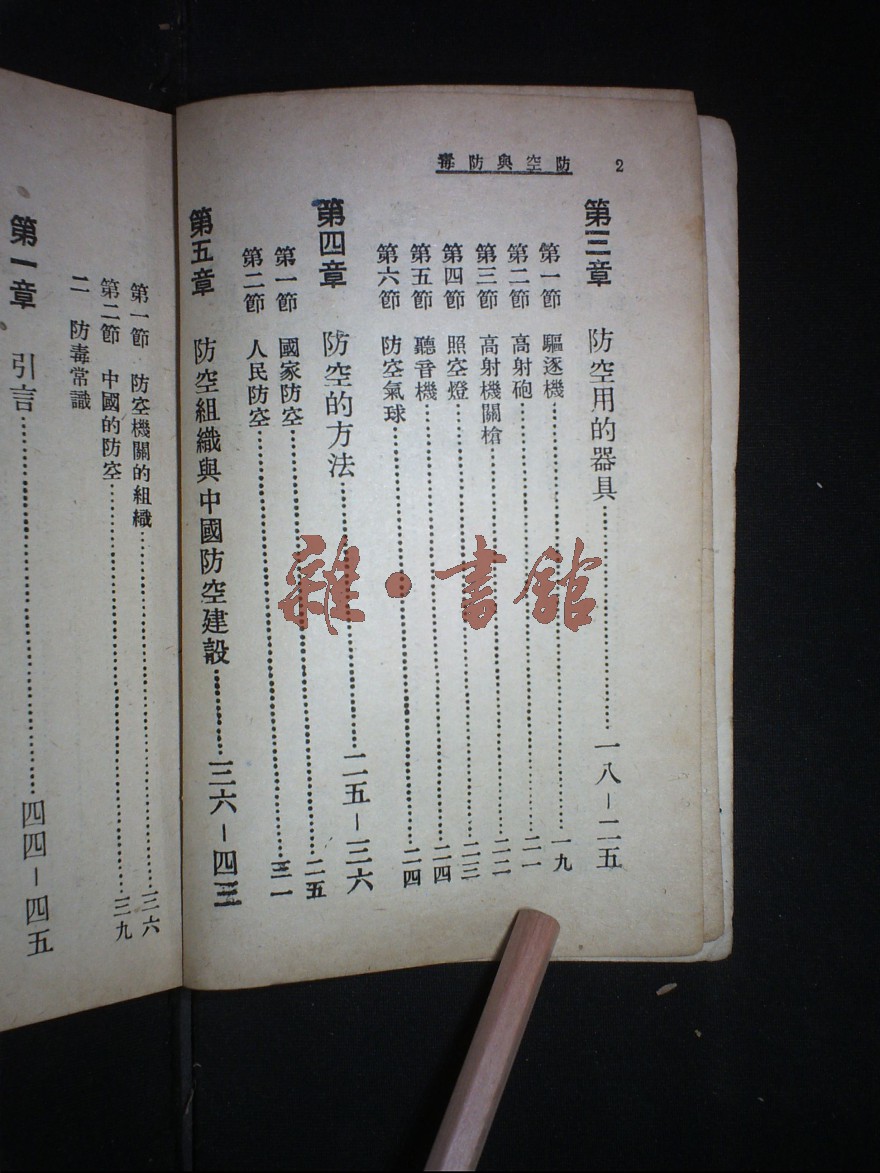 2 防空與防毒
第三章 防空用的器具……一八—二五
第一節 驅逐機……一九
第二節 高射砲……二一
第三節 高射機關槍……二二
第四節 照空燈……二三
第五節 聽音機……二四
第六節 防空氣球……二四
第四章 防空的方法……二五—三六
第一節 國家防空……二五
第二節 人民防空……三一
第五章 防空組織與中國防空建設……三六—四三
第一節 防空機關的組織……三六
第二節 中國的防空……三九
二 防毒常識
第一章 引言……四四—四五
雜·書館